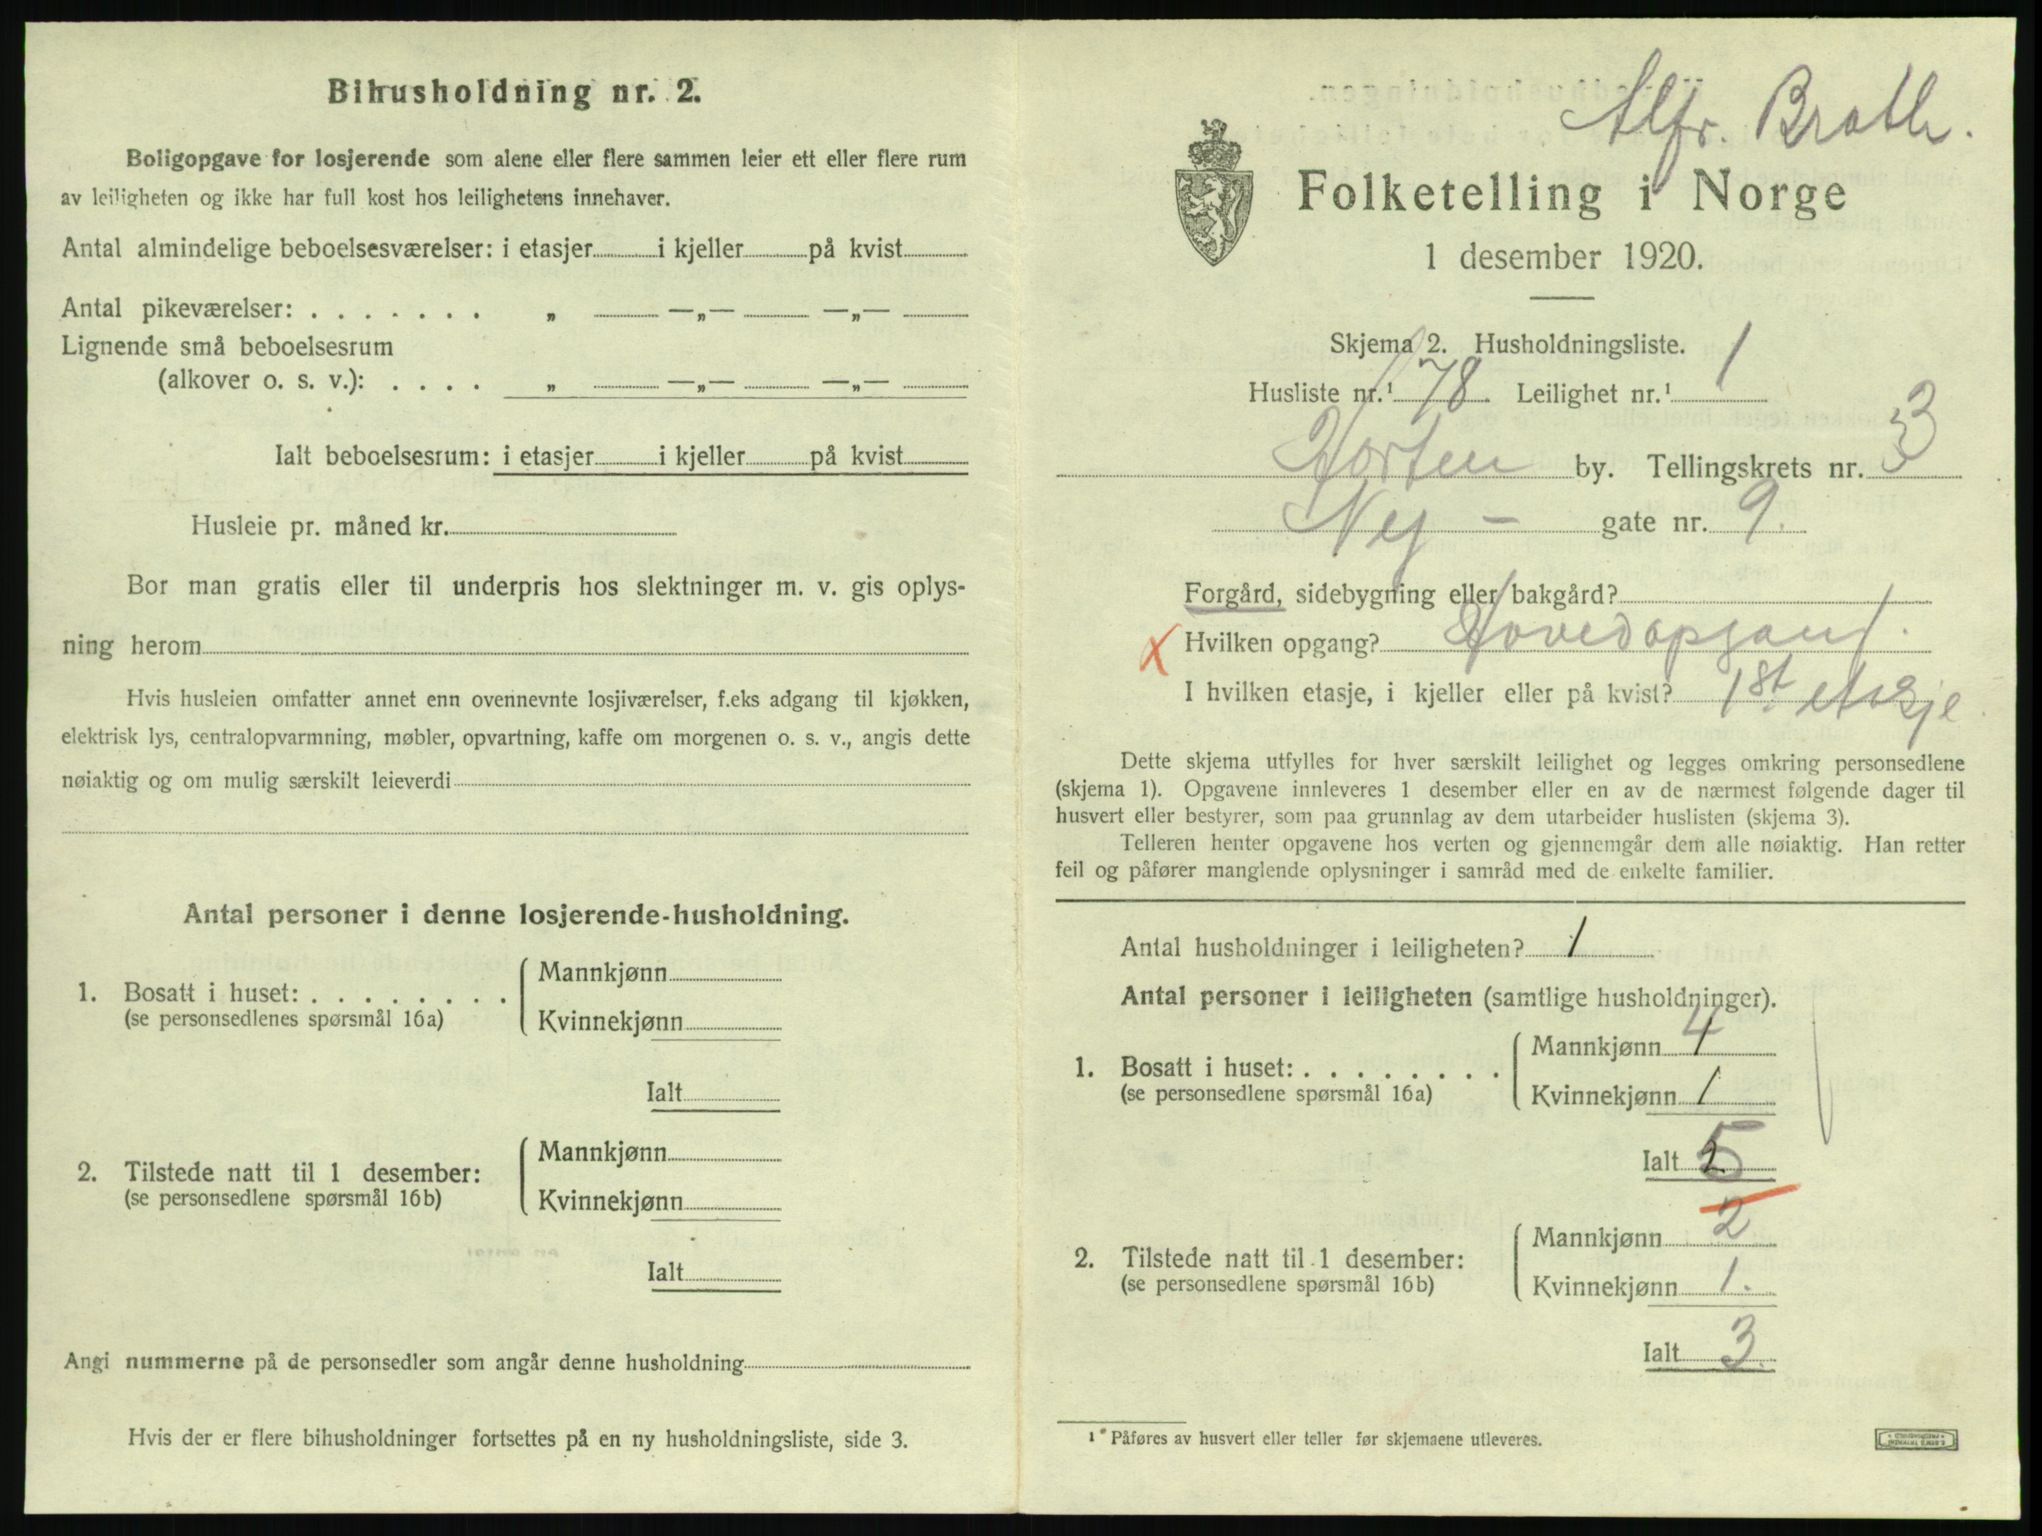 Bihusholdning nr. 2.
Boligopgave for losjerende som alene eller flere sammen leier ett eller flere rum
av leiligheten og ikke har full kost hos leilighetens innehaver.
Antal almindelige beboelsesværelser: i etasjer i kjeller på kvist
Antal pikeværelser: . . . . . . . „ —„— —„—
Lignende små beboelsesrum
(alkover o. s. v.): . . . . „ —„— —„—
Ialt beboelsesrum: i etasjer i kjeller på kvist
Husleie pr. måned kr.
Bor man gratis eller til underpris hos slektninger m. v. gis oplys-
ning herom
Hvis husleien omfatter annet enn ovennevnte losjiværelser, f.eks adgang til kjøkken,
elektrisk lys, centralopvarmning, møbler, opvartning, kaffe om morgenen o. s. v., angis dette
nøiaktig og om mulig særskilt leieverdi
Antal personer i denne losjerende-husholdning.
1. Bosatt i huset: . . . . . . . . Mannkjønn
(se personsedlenes spørsmål 16a) Kvinnekjønn
Ialt
2. Tilstede natt til 1 desember: Mannkjønn
(se personsedlene spørsmål 16b) Kvinnekjønn
Ialt
Angi nummerne på de personsedler som angår denne husholdning
Hvis der er flere bihusholdninger fortsettes på en ny husholdningsliste, side 3.
Alfr. Brath.
Folketelling i Norge
1 desember 1920.
Skjema 2. Husholdningsliste.
Husliste nr.¹ 78. Leilighet nr.¹ 1
Horten by. Tellingskrets nr. 3
Ny - gate nr. 9.
Forgård, sidebygning eller bakgård?
X Hvilken opgang? Hovedopgang.
I hvilken etasje, i kjeller eller på kvist? 1st. etasje
Dette skjema utfylles for hver særskilt leilighet og legges omkring personsedlene
(skjema 1). Opgavene innleveres 1 desember eller en av de nærmest følgende dager til
husvert eller bestyrer, som paa grunnlag av dem utarbeider huslisten (skjema 3).
Telleren henter opgavene hos verten og gjennemgår dem alle nøiaktig. Han retter
feil og påfører manglende oplysninger i samråd med de enkelte familier.
Antal husholdninger i leiligheten? 1
Antal personer i leiligheten (samtlige husholdninger).
1. Bosatt i huset: . . . . . . . . Mannkjønn 4
(se personsedlene spørsmål 16a) Kvinnekjønn 1
Ialt 5
2. Tilstede natt til 1 desember: Mannkjønn 2
(se personsedlene spørsmål 16b) Kvinnekjønn 1.
Ialt 3.
¹ Påføres av husvert eller teller før skjemaene utleveres.